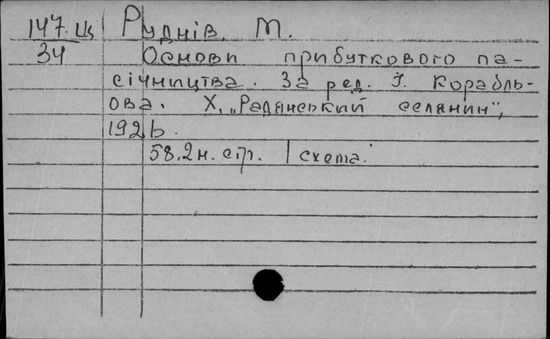 147.Ц3 Руднів. М.
34 Основи прибуткового па-
січництва. За ред. І. Корабль-
ова. Х, „Радянський селянин",
1926.
58.2н. стр. схема.